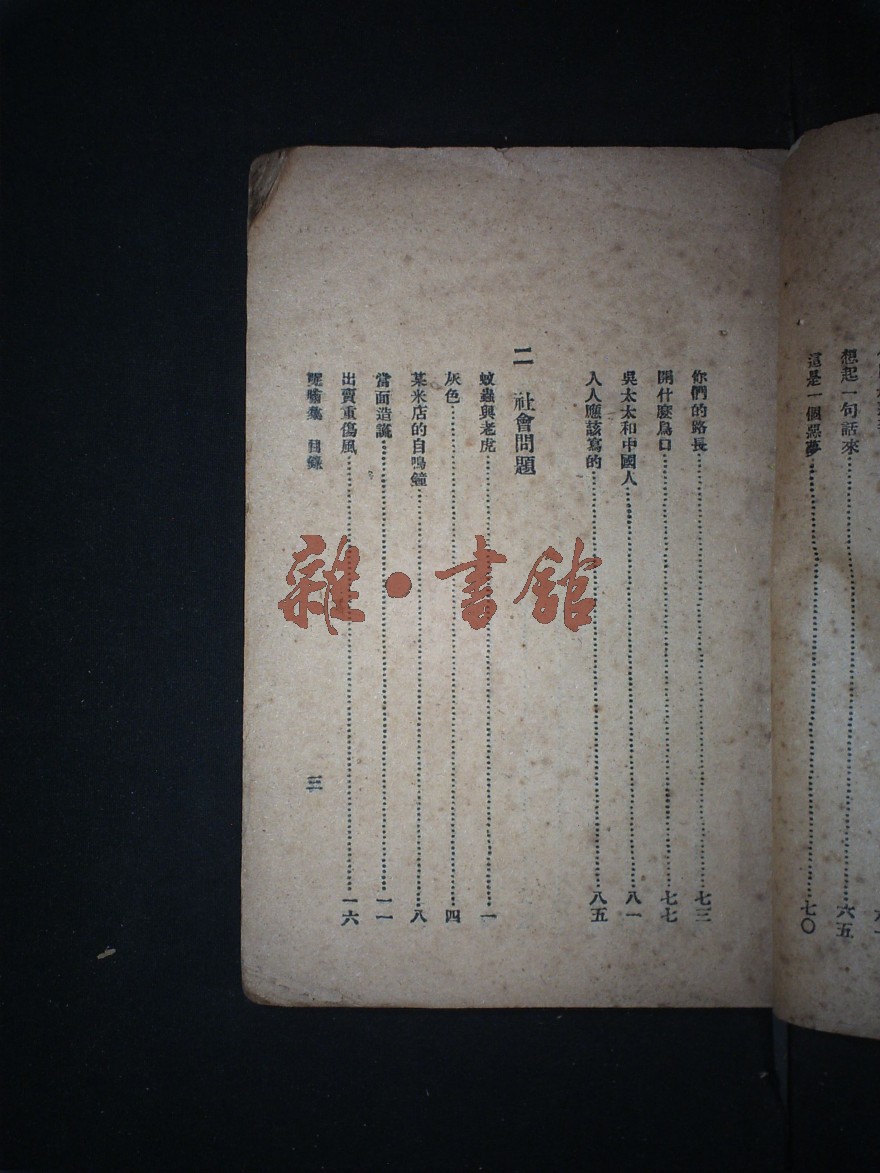 想起一句話來……六五
這是一個惡夢……七〇
你們的路長……七三
開什麼鳥口……七七
吳太太和中國人……八一
人人應該寫的……八五
二 社會問題
蚊蟲與老虎……一
灰色……四
某米店的自鳴鐘……八
當面造謠……一一
出賣重傷風……一六
集 目錄 三
雜·書館